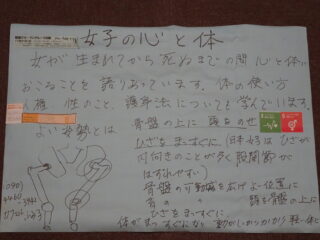 女子の心と体
女が 生まれてから 死ぬまでの間 心と体に
おこることを 語りあっています. 体の使い方
人権 性のこと、護身法についても学んでいます.
よい姿勢とは 骨盤の上に 頭をのせ
ひざをまっすぐに. (日本女子は ひざが
内向きのことが多く股関節が
はずれやすい)
骨盤の可動域を広げ よい位置に
首の 頭を骨盤の上に
ひざをまっすぐに
体がまっすぐに
090
4460
3941